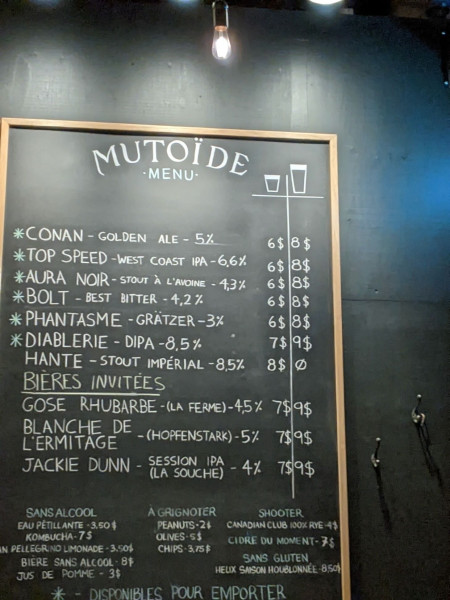 MUTOÏDE
·MENU·
*CONAN - GOLDEN ALE - 5% 6$ 8$
*TOP SPEED - WEST COAST IPA - 6,6% 6$ 8$
*AURA NOIR - STOUT À L'AVOINE - 4,3% 6$ 8$
*BOLT - BEST BITTER - 4,2% 6$ 8$
*PHANTASME - GRÄTZER - 3% 6$ 8$
*DIABLERIE - DIPA - 8,5% 7$ 9$
HANTE - STOUT IMPÉRIAL - 8,5% 8$ Ø
BIÈRES INVITÉES
GOSE RHUBARBE - (LA FERME) - 4,5% 7$ 9$
BLANCHE DE
L'ERMITAGE - (HOPFENSTARK) - 5% 7$ 9$
JACKIE DUNN - SESSION IPA
(LA SOUCHE) - 4% 7$ 9$
SANS ALCOOL
EAU PÉTILLANTE - 3.50$
KOMBUCHA - 7$
N PELLEGRINO LIMONADE - 3.50$
BIÈRE SANS ALCOOL - 8$
JUS DE POMME - 3$
À GRIGNOTER
PEANUTS - 2$
OLIVES - 5$
CHIPS - 3,75$
SHOOTER
CANADIAN CLUB 100% RYE - 4$
CIDRE DU MOMENT -
SANS GLUTEN
HELIX SAISON HOUBLONNÉE - 8.50$
* - DISPONIBLES POUR EMPORTER